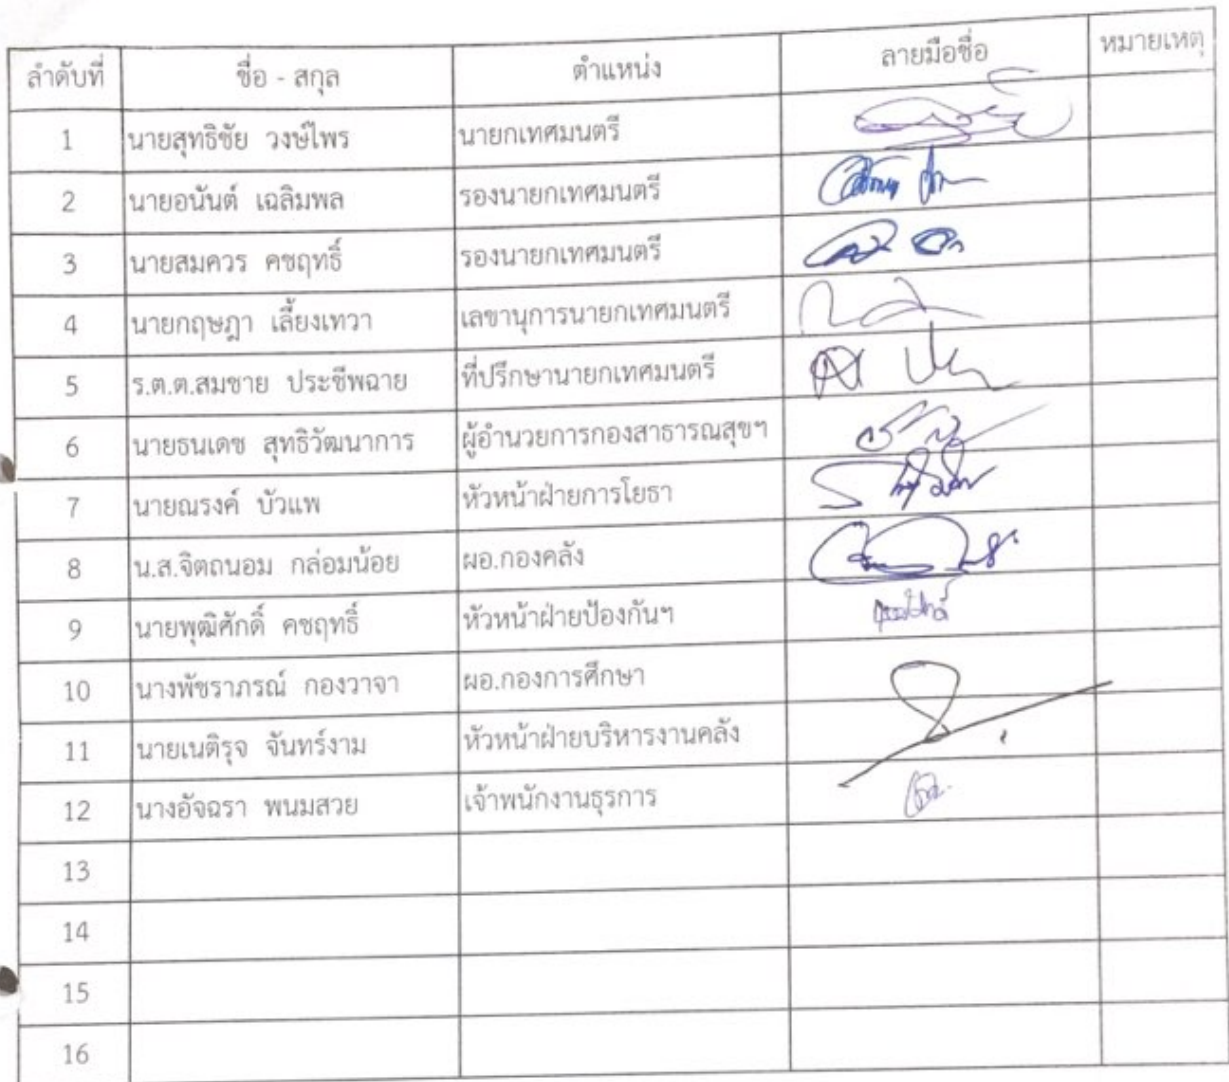 ลำดับที่ ชื่อ - สกุล ตำแหน่ง ลายมือชื่อ หมายเหตุ
1 นายสุทธิชัย วงษ์ไพร นายกเทศมนตรี
2 นายอนันต์ เฉลิมพล รองนายกเทศมนตรี
3 นายสมควร คชฤทธิ์ รองนายกเทศมนตรี
4 นายกฤษฎา เลี้ยงเทวา เลขานุการนายกเทศมนตรี
5 ร.ต.ต.สมชาย ประชีพฉาย ที่ปรึกษานายกเทศมนตรี
6 นายธนเดช สุทธิวัฒนาการ ผู้อำนวยการกองสาธารณสุขฯ
7 นายณรงค์ บัวแพ หัวหน้าฝ่ายการโยธา
8 น.ส.จิตถนอม กล่อมน้อย ผอ.กองคลัง
9 นายพุฒิศักดิ์ คชฤทธิ์ หัวหน้าฝ่ายป้องกันฯ
10 นางพัชราภรณ์ กองวาจา ผอ.กองการศึกษา
11 นายเนติรุจ จันทร์งาม หัวหน้าฝ่ายบริหารงานคลัง
12 นางอัจฉรา พนมสวย เจ้าพนักงานธุรการ
13
14
15
16